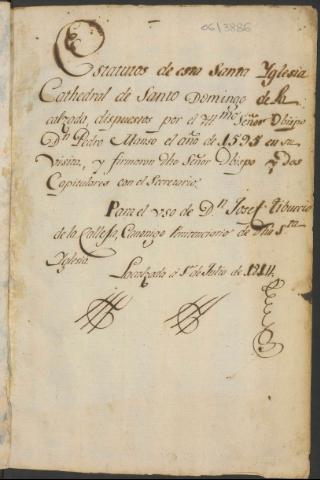 06/3886
Estatutos de esta Santa Yglesia
Cathedral de Santo Domingo de la
calzada, dispuestos por el Yllmo Señor Obispo
Dn Pedro Manso el año de 1595 en su
Visita, y firmaron dho Señor Obispo y dos
Capitulares con el Secretario.
Para el vso de Dn Josef Tiburcio
de la Calleja, Canonigo Penitenciario de dha Sta
Yglesia.
Calzada de Julio de